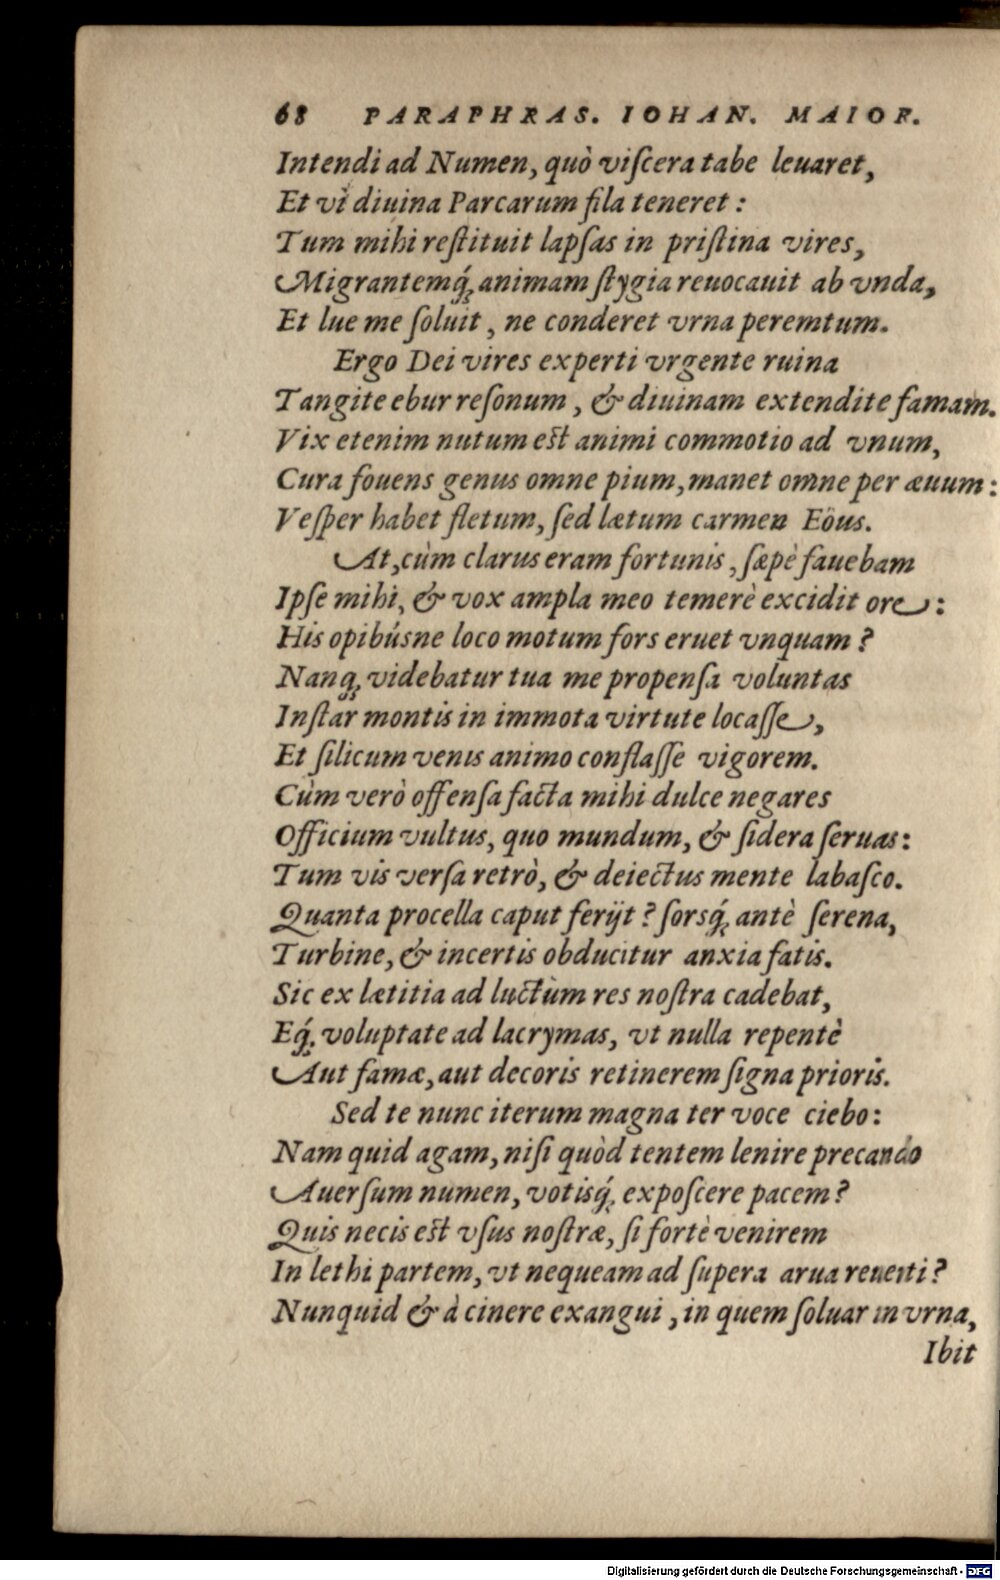 68 PARAPHRAS. IOHAN. MAIOR.
Intendi ad Numen, quò viſcera tabe leuaret,
Et vi diuina Parcarum fila teneret:
Tum mihi reſtituit lapſas in priſtina vires,
Migrantemq́; animam ſtygia reuocauit ab vnda,
Et lue me ſoluit, ne conderet vrna peremtum.
Ergo Dei vires experti vrgente ruina
Tangite ebur reſonum, & diuinam extendite famam.
Vix etenim nutum eſt animi commotio ad vnum,
Cura fouens genus omne pium, manet omne per æuum:
Veſper habet fletum, ſed lætum carmen Eôus.
At, cùm clarus eram fortunis, ſæpè fauebam
Ipſe mihi, & vox ampla meo temerè excidit ore:
His opibúsne loco motum fors eruet vnquam?
Nanq; videbatur tua me propenſa voluntas
Inſtar montis in immota virtute locaſſe,
Et ſilicum venis animo conflaſſe vigorem.
Cùm verò offenſa facta mihi dulce negares
Officium vultus, quo mundum, & ſidera ſeruas:
Tum vis verſa retrò, & deiectus mente labaſco.
Quanta procella caput ferijt? ſorsq́; antè ſerena,
Turbine, & incertis obducitur anxia fatis.
Sic ex lætitia ad luctùm res noſtra cadebat,
Eq́; voluptate ad lacrymas, vt nulla repentè
Aut famæ, aut decoris retinerem ſigna prioris.
Sed te nunc iterum magna ter voce ciebo:
Nam quid agam, niſi quòd tentem lenire precando
Auerſum numen, votisq́; expoſcere pacem?
Quis necis eſt vſus noſtræ, ſi fortè venirem
In lethi partem, vt nequeam ad ſupera arua reuerti?
Nunquid & à cinere exangui, in quem ſoluar in vrna,
Ibit
Digitalisierung gefördert durch die Deutsche Forschungsgemeinschaft - DFG